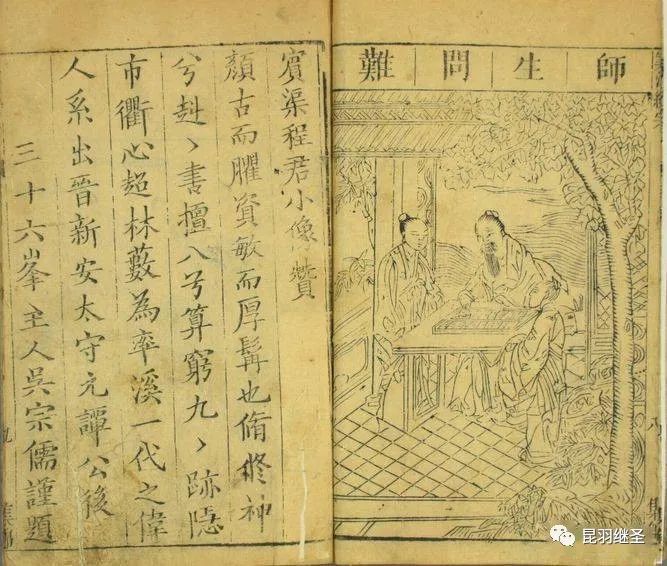 師生問難
賓渠程君小像贊
顏古而臞資敏而厚髯也脩修神
兮赳〻書擅八兮算窮九〻跡隱
市衢心超林藪為率溪一代之偉
人系出晉新安太守元譚公後
三十六峯主人吳宗儒謹題
昆羽继圣